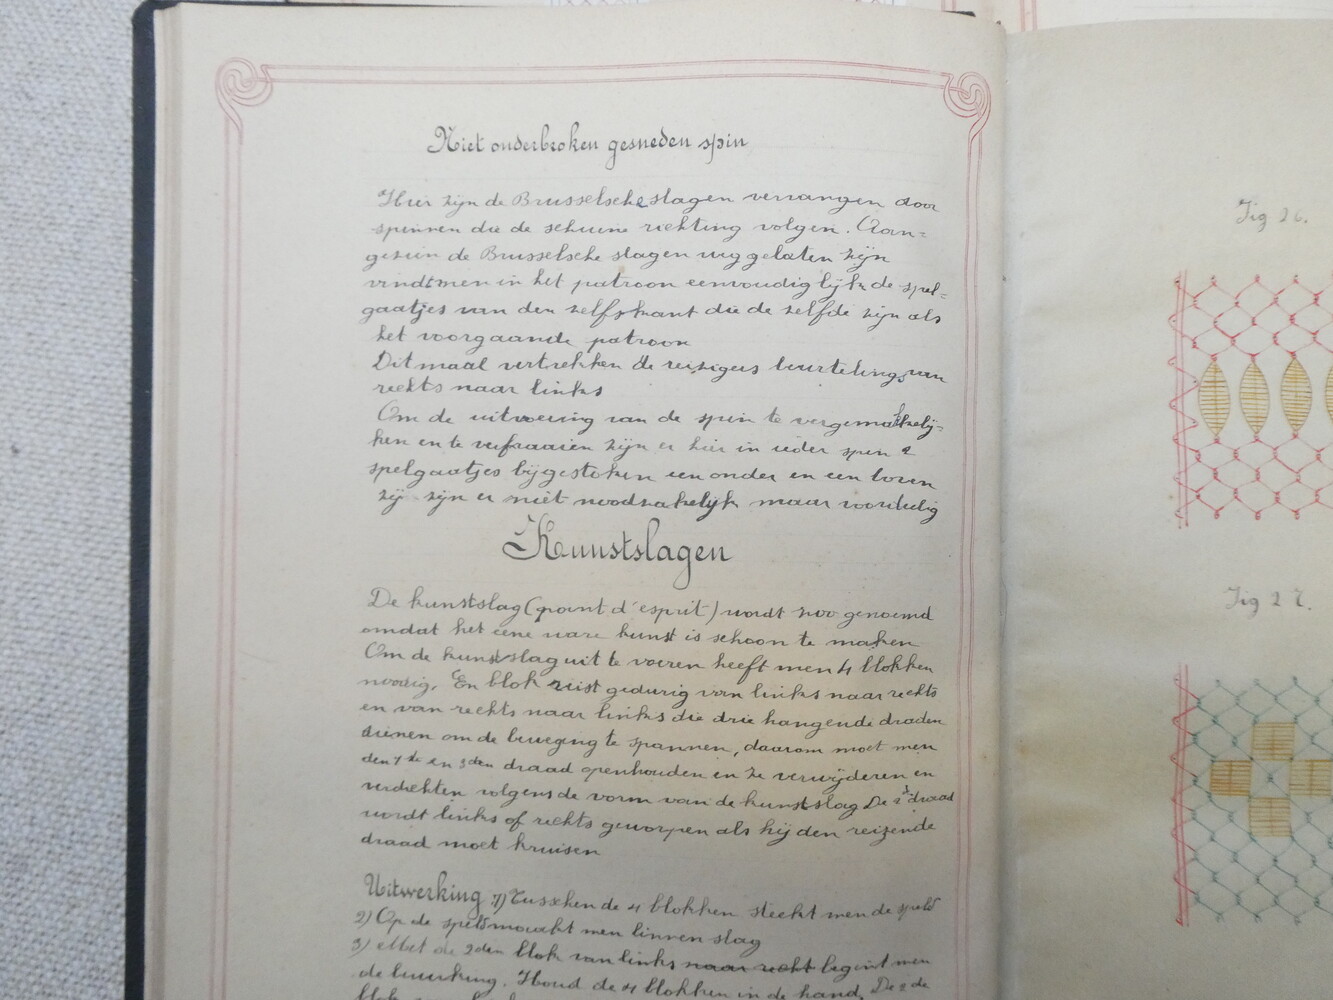 Niet onderbroken gesneden spin
Hier zijn de Brusselsche slagen vervangen door
spinnen die de schuine richting volgen. Aan=
gezien de Brusselsche slagen weggelaten zijn
vindt men in het patroon eenvoudiglijk de spel=
gaatjes van den zelfskant die de zelfde zijn als
het voorgaande patroon
Ditmaal vertrekken de reizigers beurtelings van
rechts naar links
Om de uitvoering van de spin te vergemakkelij=
ken en te verfraaien zijn er hier in ieder spin 2
spelgaatjes bijgestoken een onder en een boven
zij zijn er niet noodzakelijk maar voordeelig
Kunstslagen
De kunstslag (point d'esprit) wordt zoo genoemd
omdat het eene ware kunst is schoon te maken
Om de kunstslag uit te voeren heeft men 4 blokken
noodig. En blok reist gedurig van links naar rechts
en van rechts naar links die drie hangende draden
dienen om de beweging te spannen, daarom moet men
den 1ste en 3den draad openhouden en ze verwijderen en
verdichten volgens de vorm van de kunstslag De 2 draad
wordt links of rechts geworpen als hij den reizende
draad moet kruisen
Uitwerking 1) Tusschen de 4 blokken steekt men de speld
2) Op de speld maakt men linnen slag
3) Met de 2den blok van links naar recht begint men
de bewerking. Houd de 4 blokken in de hand. De 2de
Fig 26.
Fig 27.